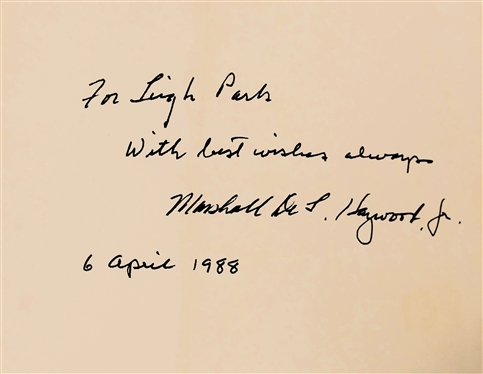 For Leigh Park
With best wishes always
Marshall De L. Haywood, Jr.
6 April 1988